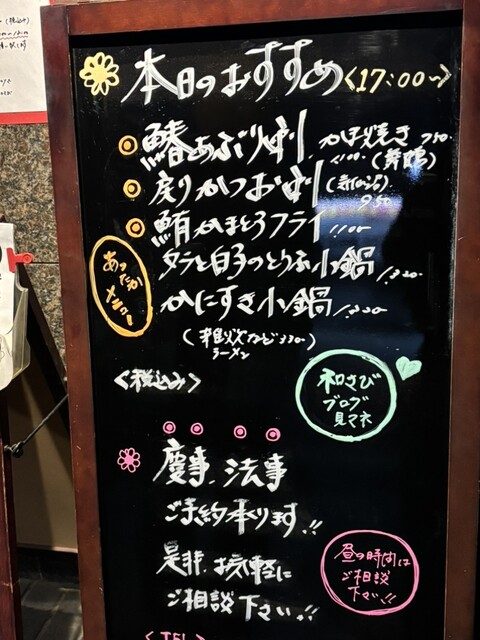 本日のおすすめ<17:00〜>
鰆あぶり刺 1100 かま焼き 750
(舞鶴)
戻りかつお刺 950
鮪かまとろフライ 1100
あったかメニュー
タラと白子のとうふ小鍋 1320
かにすき小鍋 1320
(雑炊など330)
ラーメン
<税込み>
和さび
ブログ
見てネ
慶事、法事
ご予約承ります!!
是非、お気軽に
ご相談下さい!!
昼の時間は
ご相談
下さい!!
<TEL>